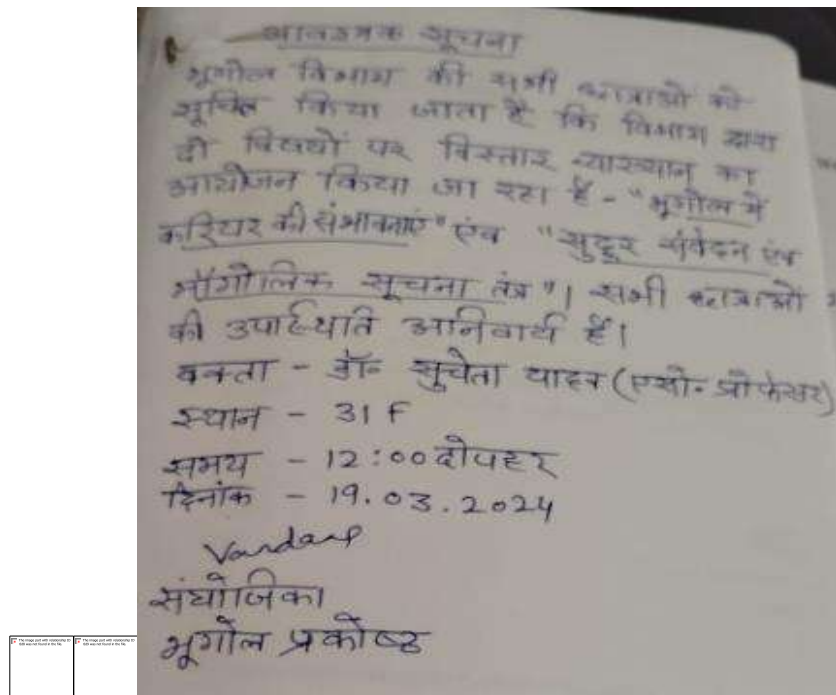 आवश्यक सूचना
भूगोल विभाग की सभी छात्राओं को
सूचित किया जाता है कि विभाग द्वारा
दो विषयों पर विस्तार व्याख्यान का
आयोजन किया जा रहा है - "भूगोल में
करियर की संभावनाएं" एंव "सुदूर संवेदन एंव
भौगोलिक सूचना तंत्र"। सभी छात्राओं
की उपस्थिति अनिवार्य है।
वक्ता - डॉ॰ सुचेता यादव (एसो॰ प्रोफेसर)
स्थान - 31F
समय - 12:00 दोपहर
दिनांक - 19.03.2024
संयोजिका
भूगोल प्रकोष्ठ